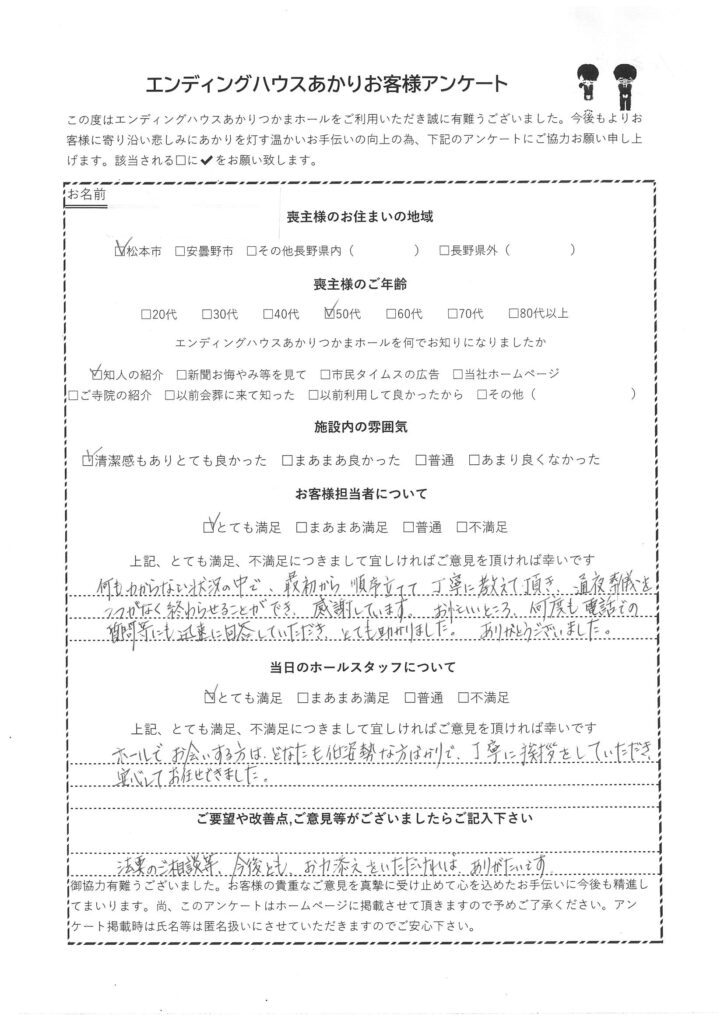 エンディングハウスあかりお客様アンケート
この度はエンディングハウスあかりつかまホールをご利用いただき誠に有難うございました。今後もよりお
客様に寄り沿い悲しみにあかりを灯す温かいお手伝いの向上の為、下記のアンケートにご協力お願い申し上
げます。該当される□に✔をお願い致します。
お名前
喪主様のお住まいの地域
☑松本市 □安曇野市 □その他長野県内（ ） □長野県外（ ）
喪主様のご年齢
□20代 □30代 □40代 ☑50代 □60代 □70代 □80代以上
エンディングハウスあかりつかまホールを何でお知りになりましたか
☑知人の紹介 □新聞お悔やみ等を見て □市民タイムスの広告 □当社ホームページ
□ご寺院の紹介 □以前会葬に来て知った □以前利用して良かったから □その他（ ）
施設内の雰囲気
☑清潔感もありとても良かった □まあまあ良かった □普通 □あまり良くなかった
お客様担当者について
☑とても満足 □まあまあ満足 □普通 □不満足
上記、とても満足、不満足につきまして宜しければご意見を頂ければ幸いです
何もわからない状況の中で、最初から順序立てて丁寧に教えて頂き、通夜葬儀を
つつがなく終わらせることができ、感謝しています。お忙しいところ、何度も電話での
質問等にも迅速に回答していただき、とても助かりました。ありがとうございました。
当日のホールスタッフについて
☑とても満足 □まあまあ満足 □普通 □不満足
上記、とても満足、不満足につきまして宜しければご意見を頂ければ幸いです
ホールでお会いする方は、どなたも低姿勢な方ばかりで、丁寧に挨拶をしていただき
安心してお任せできました。
ご要望や改善点,ご意見等がございましたらご記入下さい
法要のご相談等、今後とも、お力添えをいただければ、ありがたいです
御協力有難うございました。お客様の貴重なご意見を真摯に受け止めて心を込めたお手伝いに今後も精進し
てまいります。尚、このアンケートはホームページに掲載させて頂きますので予めご了承ください。アン
ケート掲載時は氏名等は匿名扱いにさせていただきますのでご安心下さい。